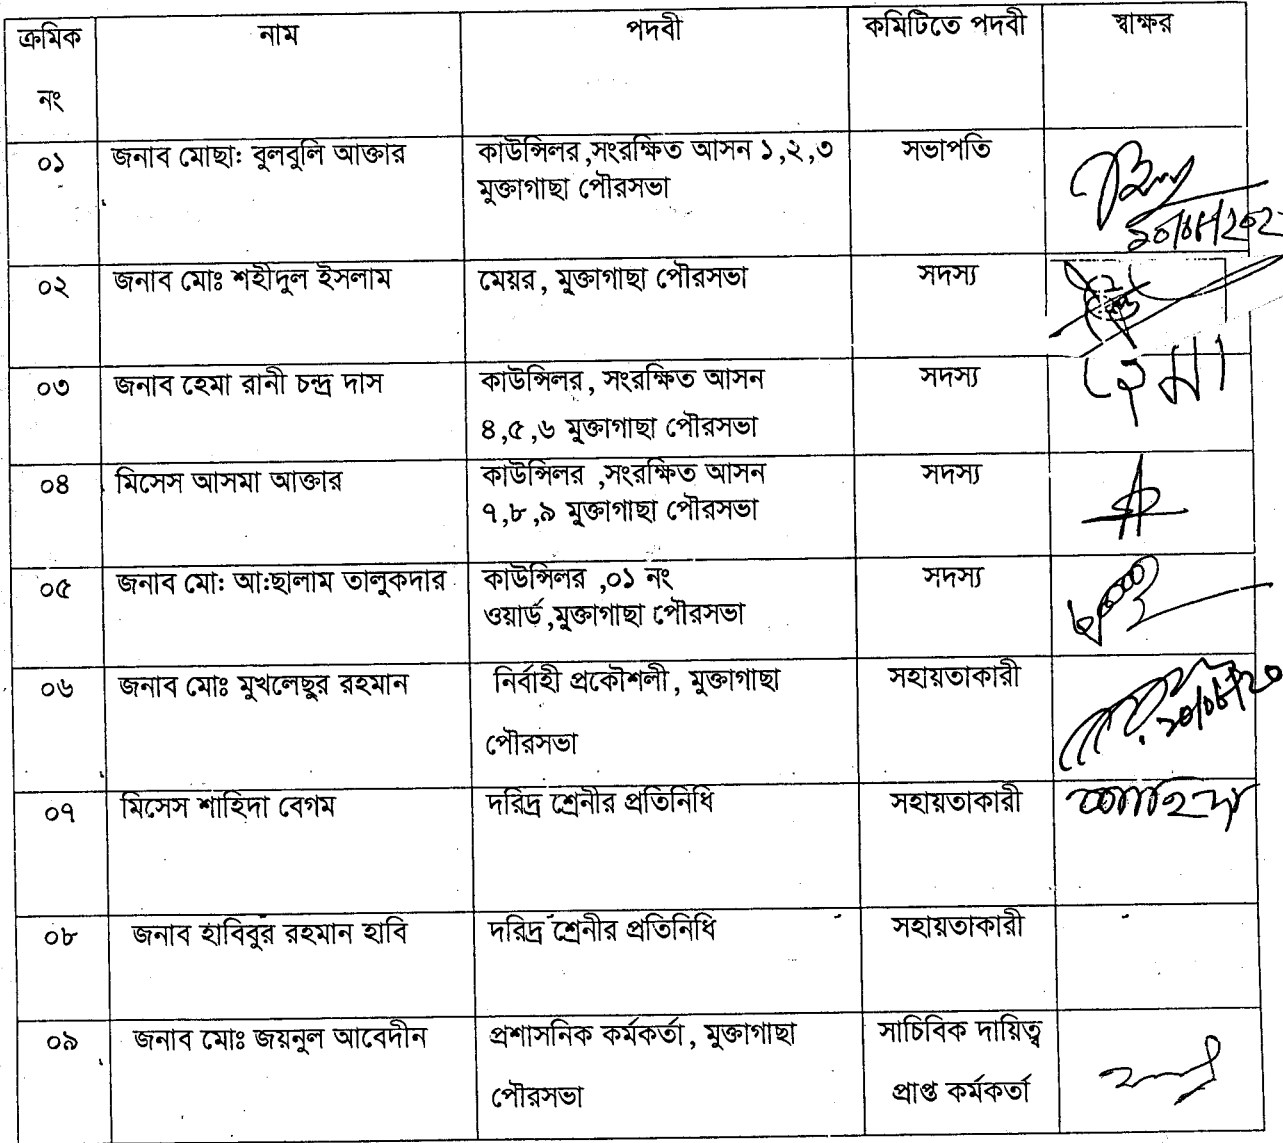 ক্রমিক নং | নাম | পদবী | কমিটিতে পদবী | স্বাক্ষর
০১ | জনাব মোছা: বুলবুলি আক্তার | কাউন্সিলর,সংরক্ষিত আসন ১,২,৩ | সভাপতি
মুক্তাগাছা পৌরসভা
০২ | জনাব মোঃ শহীদুল ইসলাম | মেয়র, মুক্তাগাছা পৌরসভা | সদস্য
০৩ | জনাব হেমা রানী চন্দ্র দাস | কাউন্সিলর, সংরক্ষিত আসন | সদস্য | হেমা
৪,৫,৬ মুক্তাগাছা পৌরসভা
০৪ | মিসেস আসমা আক্তার | কাউন্সিলর ,সংরক্ষিত আসন | সদস্য
৭,৮,৯ মুক্তাগাছা পৌরসভা
০৫ | জনাব মো: আ:ছালাম তালুকদার | কাউন্সিলর ,০১ নং | সদস্য
ওয়ার্ড,মুক্তাগাছা পৌরসভা
০৬ | জনাব মোঃ মুখলেছুর রহমান | নির্বাহী প্রকৌশলী, মুক্তাগাছা | সহায়তাকারী
পৌরসভা
০৭ | মিসেস শাহিদা বেগম | দরিদ্র শ্রেনীর প্রতিনিধি | সহায়তাকারী | শাহিদা
০৮ | জনাব হাবিবুর রহমান হাবি | দরিদ্র শ্রেনীর প্রতিনিধি | সহায়তাকারী
০৯ | জনাব মোঃ জয়নুল আবেদীন | প্রশাসনিক কর্মকর্তা, মুক্তাগাছা | সাচিবিক দায়িত্ব
পৌরসভা | প্রাপ্ত কর্মকর্তা